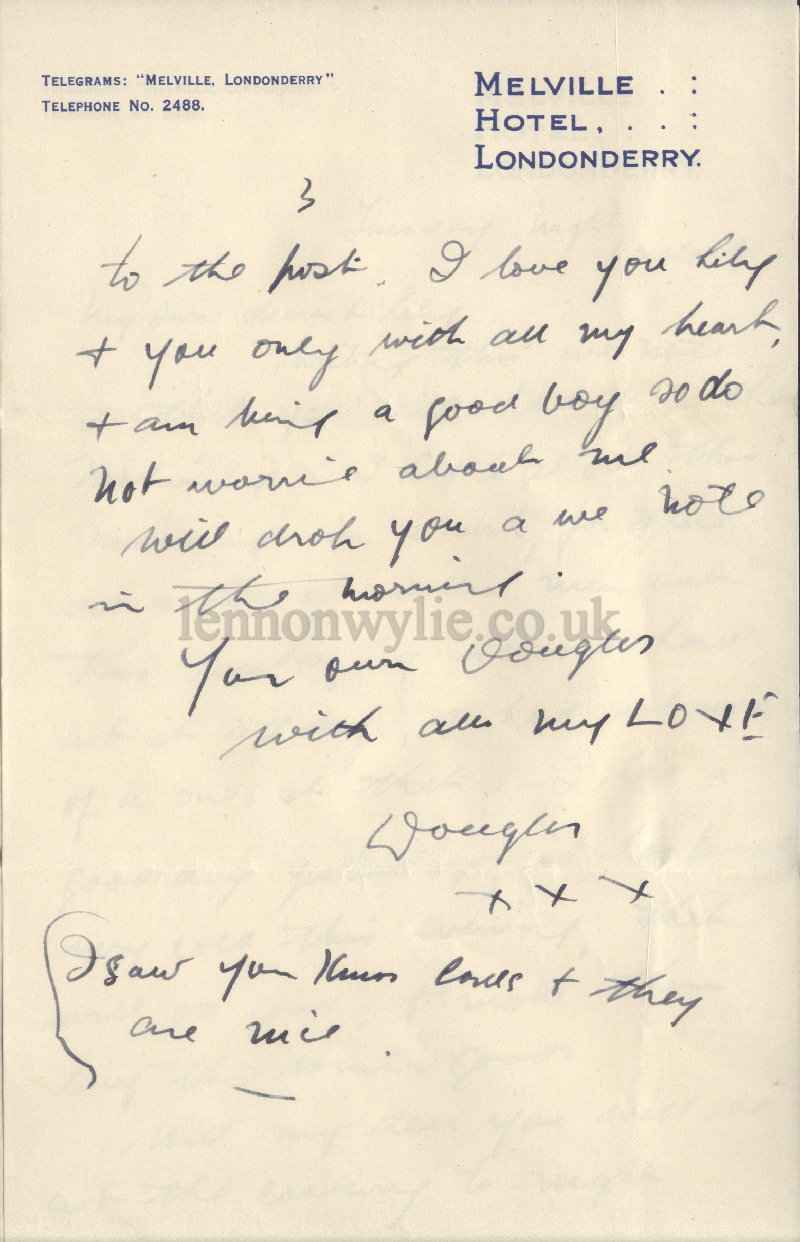 TELEGRAMS: "MELVILLE, LONDONDERRY"
TELEPHONE NO. 2488.
MELVILLE . :
HOTEL, . . :
LONDONDERRY.
3
to the post. I love you Lily
+ you only with all my heart,
+ am being a good boy so do
not worrie about me
will drop you a we note
in the morning.
lennonwylie.co.uk
Your own Douglas
with all my LOVE
Douglas
x x x
I saw your Xmas cards + they
are nice.